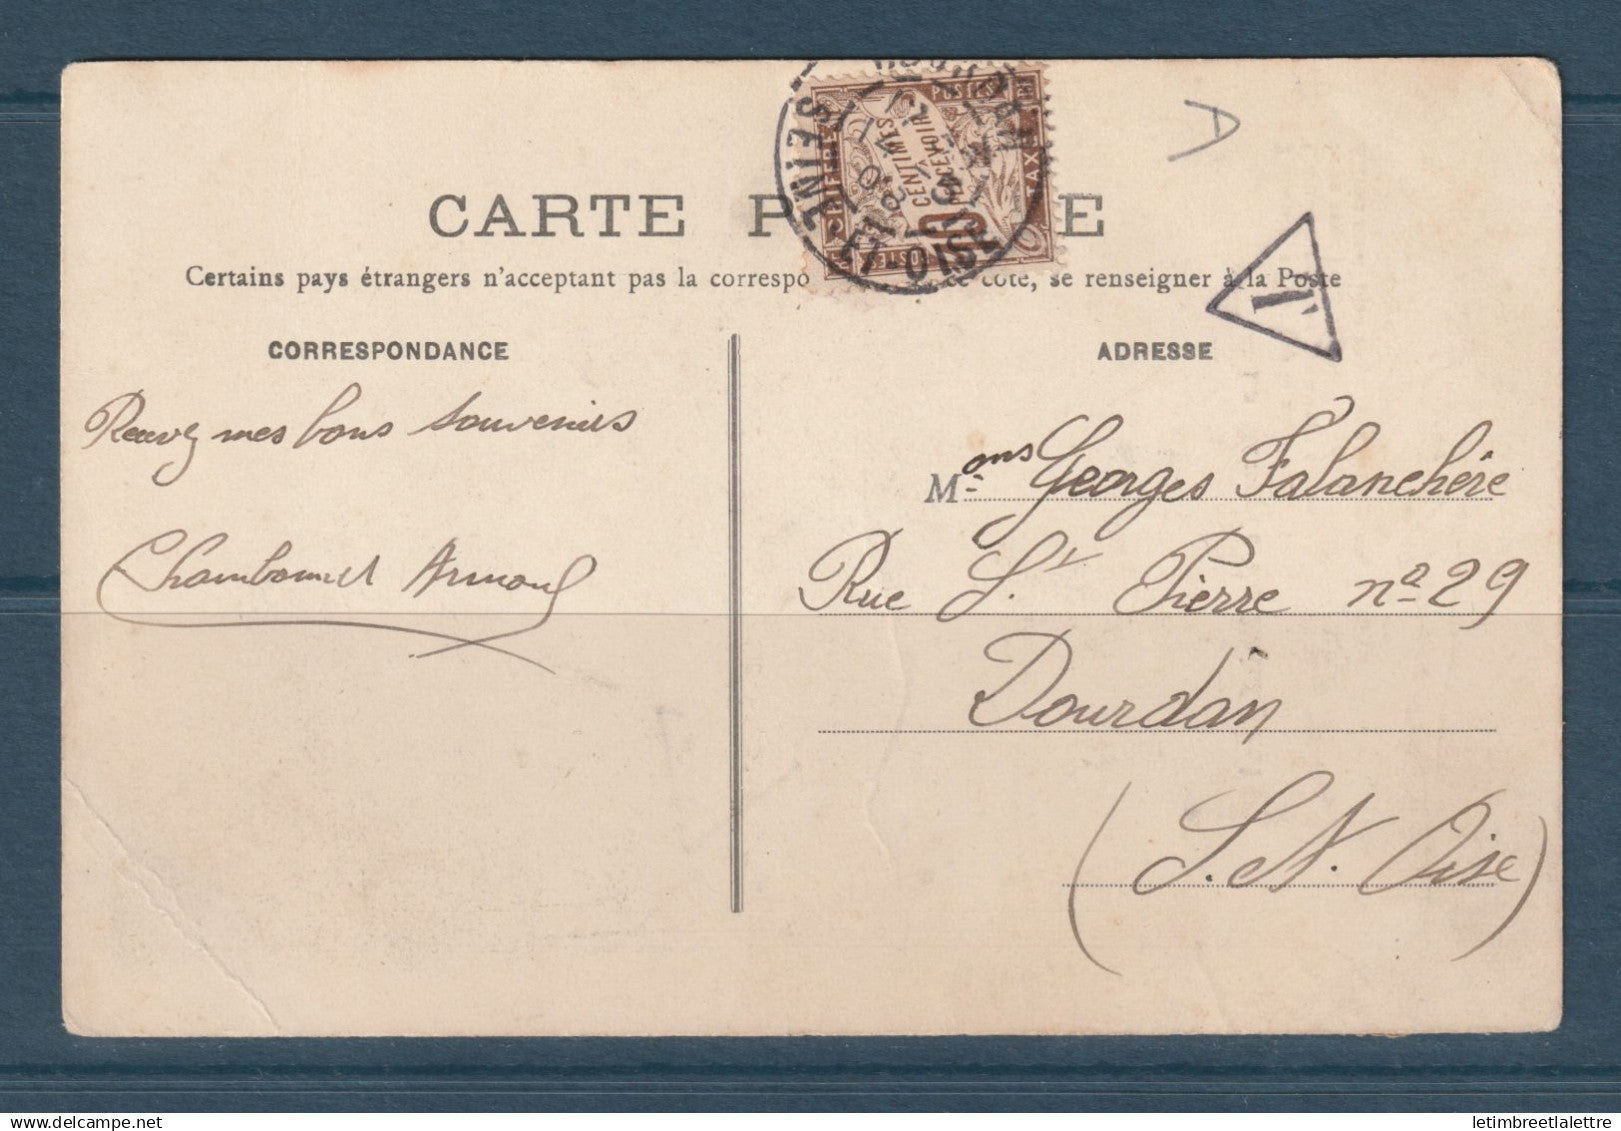 A
CARTE P E
Certains pays étrangers n'acceptant pas la correspo ce côté, se renseigner à la Poste
CORRESPONDANCE
ADRESSE
T
POSTES
CENTIMES
TAXE
SEINE-ET-OISE
Recevez mes bons souvenirs
Armand
Mons Georges Falanchère
Rue St Pierre no 29
Dourdan
(S. et. Oise)
delcampe.net
letimbreetlalettre